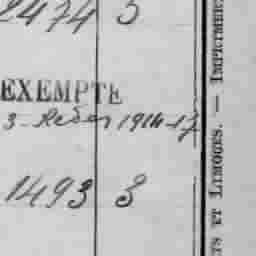 2474 5
EXEMPTE
1914-17
1493 8
ET LIMOGES. — IMPRIMERIE